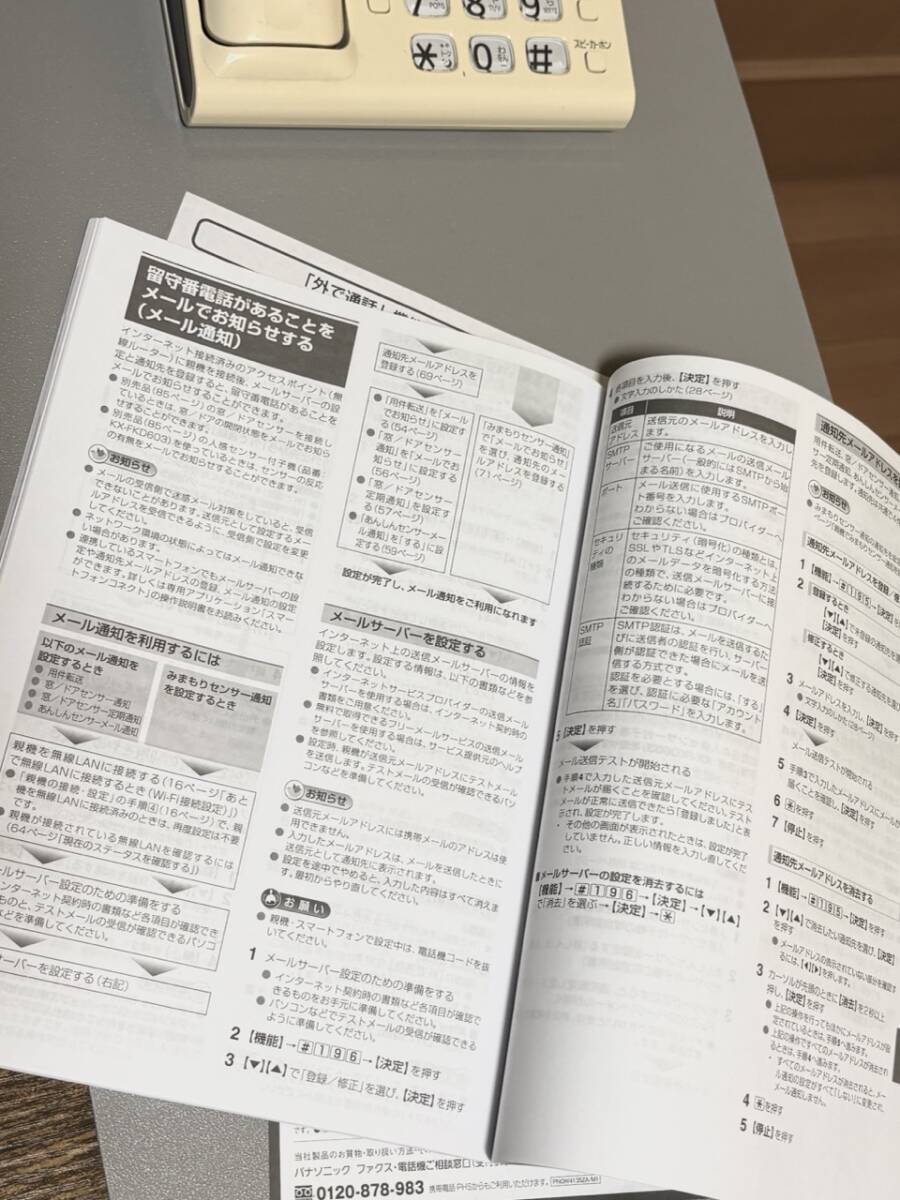 7 PQRS
8
9
＊
0
#
スピーカーホン
「外で通話」
留守番電話があることを
メールでお知らせする
（メール通知）
インターネット接続済みのアクセスポイント（無
線ルーター）に親機を接続後、メールサーバーの設
定と通知先を登録すると、留守番電話があることを
メールでお知らせすることができます。
● 別売品（85ページ）の窓／ドアセンサーを接続し
ているときは、窓／ドアの開閉状態をメールでお知ら
せすることができます。
● 別売品（85ページ）の人感センサー付子機（品番：
KX-FKD603）を使っているときは、センサーの反応
の有無をメールでお知らせすることができます。
お知らせ
● メールの受信側で迷惑メール対策をしていると、受信
できないことがあります。送信元として設定するメー
ルアドレスを受信できるように、受信側で設定を変更
してください。
● ネットワーク環境の状態によってはメール通知できな
い場合があります。
● 連携しているスマートフォンでもメールサーバーの設
定や通知先メールアドレスの登録、メール通知の設定
ができます。詳しくは専用アプリケーション「スマー
トフォンコネクト」の操作説明書をお読みください。
メール通知を利用するには
以下のメール通知を
設定するとき
● 用件転送
● 窓／ドアセンサー通知
● 窓／ドアセンサー定期通知
● あんしんセンサーメール通知
みまもりセンサー通知
を設定するとき
親機を無線LANに接続する（16ページ「あと
で無線LANに接続するとき（Wi-Fi接続設定）」）
● 「親機の接続・設定」の手順④（16ページ）で、親
機を無線LANに接続済みのときは、再度設定は不要
です。
親機が接続されている無線LANを確認するには
（64ページ「現在のステータスを確認する」）
ールサーバー設定のための準備をする
ンターネット契約時の書類など各項目が確認でき
ものと、テストメールの受信が確認できるパソコ
などを準備してください。
ーバーを設定する（右記）
通知先メールアドレスを
登録する（69ページ）
● 「用件転送」を「メール
でお知らせ」に設定す
る（54ページ）
● 「窓／ドアセンサー通
知」を「メールでお知
らせ」に設定する
（56ページ）
● 「窓／ドアセンサー
定期通知」を設定す
る（57ページ）
● 「あんしんセンサーメー
ル通知」を「する」に設
定する（59ページ）
「みまもりセンサー通知」
で「メールでお知らせ」
を選び、通知先のメー
ルアドレスを登録する
（71ページ）
設定が完了し、メール通知をご利用になれます
メールサーバーを設定する
インターネット上の送信メールサーバーの情報を
設定します。設定する情報は、以下の書類などを参
照してください。
● インターネットサービスプロバイダーの送信メール
サーバーを使用する場合は、インターネット契約時の
書類をご用意ください。
● 無料で取得できるフリーメールサービスの送信メール
サーバーを使用する場合は、サービス提供元のヘルプ
を参照してください。
● 設定時、親機が送信元メールアドレスにテストメール
を送信します。テストメールの受信が確認できるパソ
コンなどを準備してください。
お知らせ
● 送信元メールアドレスには携帯メールのアドレスは使
用できません。
● 入力したメールアドレスは、メールを送信したときに
送信元として通知先に表示されます。
● 設定を途中でやめると、入力した内容はすべて消えま
す。最初からやり直してください。
お願い
● 親機・スマートフォンで設定中は、電話機コードを抜
いてください。
1 メールサーバー設定のための準備をする
● インターネット契約時の書類など各項目が確認で
きるものをお手元に準備してください。
● パソコンなどでテストメールの受信が確認できる
ように準備してください。
2 【機能】→#196→【決定】を押す
3 【▼】【▲】で「登録／修正」を選び、【決定】を押す
4 各項目を入力後、【決定】を押す
● 文字入力のしかた（28ページ）
項目 説明
送信元アドレス 送信元のメールアドレスを入力し
ます。
SMTPサーバー ご使用になるメールの送信メール
サーバー（一般的にはSMTPから始
まる名前）を入力します。
ポート メール送信に使用するSMTPポー
ト番号を入力します。
わからない場合はプロバイダーへ
ご確認ください。
セキュリティの種類 セキュリティ（暗号化）の種類とは、
SSLやTLSなどインターネット上
のメールデータを暗号化する方法
の種類で、送信メールサーバーに接
続するために必要です。
わからない場合はプロバイダーへ
ご確認ください。
SMTP認証 SMTP認証は、メールを送信するた
びに送信者の認証を行い、サーバー
側が認証できた場合にメールを送
信する方式です。
認証を必要とする場合には、「する」
を選び、認証に必要な「アカウント
名」「パスワード」を入力します。
5 【決定】を押す
メール送信テストが開始される
● 手順4で入力した送信元メールアドレスにテス
トメールが届くことを確認してください。テスト
メールが正常に送信できたら「登録しました」と表
示され、設定が完了します。
・ その他の画面が表示されたときは、設定が完了
していません。正しい情報を入力し直してくだ
さい。
■メールサーバーの設定を消去するには
【機能】→#196→【決定】→【▼】【▲】
で「消去」を選ぶ→【決定】→＊
通知先メールアドレスを
お知らせ
通知先メールアドレスを登録／修
1 【機能】→#195→【決定】
2 登録するとき
【▼】【▲】で未登録の通知先を選
【決定】を押す
修正するとき
【▼】【▲】で修正する通知先を選
【決定】を押す
3 メールアドレスを入力し、【決定】を押
● 文字入力のしかた（28ページ）
4 【決定】を押す
メール送信テストが開始される
5 手順3で入力したメールアドレスにメールが
届くことを確認し、【決定】を押す
6 ＊を押す
7 【停止】を押す
通知先メールアドレスを消去する
1 【機能】→#195→【決定】を押す
2 【▼】【▲】で消去したい通知先を選び、【決定】
を押す
● メールアドレスの表示されていない部分を確認す
るには、【◀】【▶】を押します。
3 カーソルが先頭のときに【消去】を2秒以上
押し、【決定】を押す
4 ＊を押す
5 【停止】を押す
当社製品のお買物・取り扱い方法・
パナソニック ファクス・電話機ご相談窓口
0120-878-983
携帯電話・PHSからもご利用いただけます。